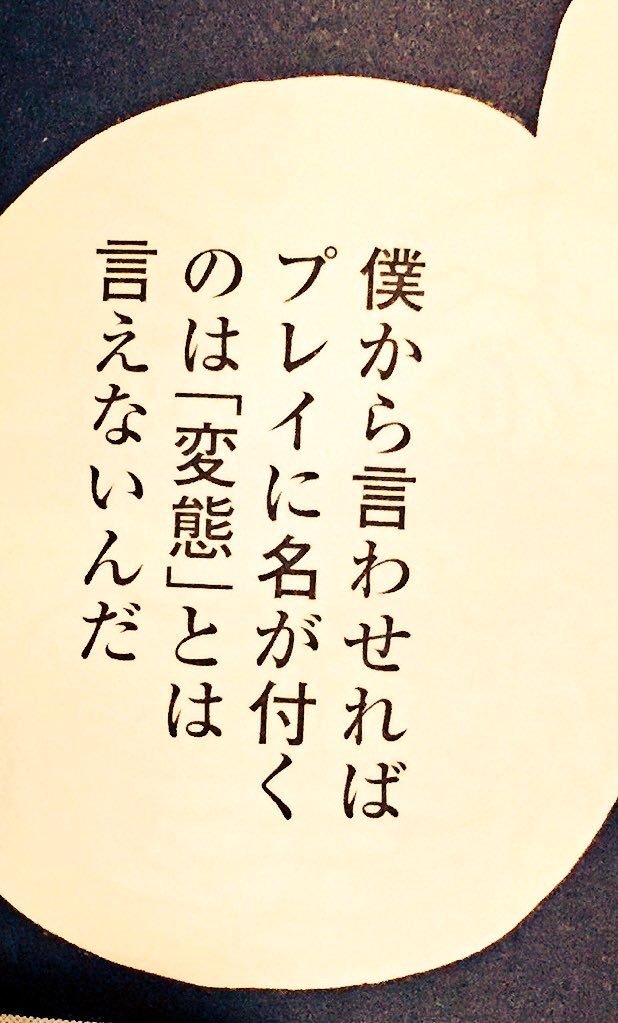 僕から言わせれば
プレイに名が付く
のは「変態」とは
言えないんだ